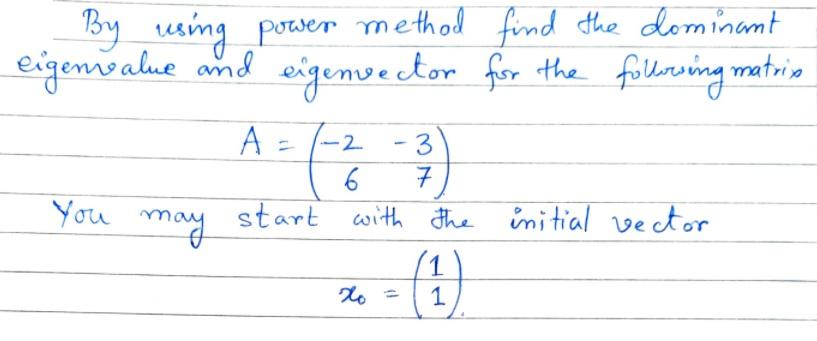 By using power method find the dominant
eigenvalue and eigenvector for the following matrix
A = (-2 -3
6 7)
You may start with the initial vector
x₀ = (1
1).